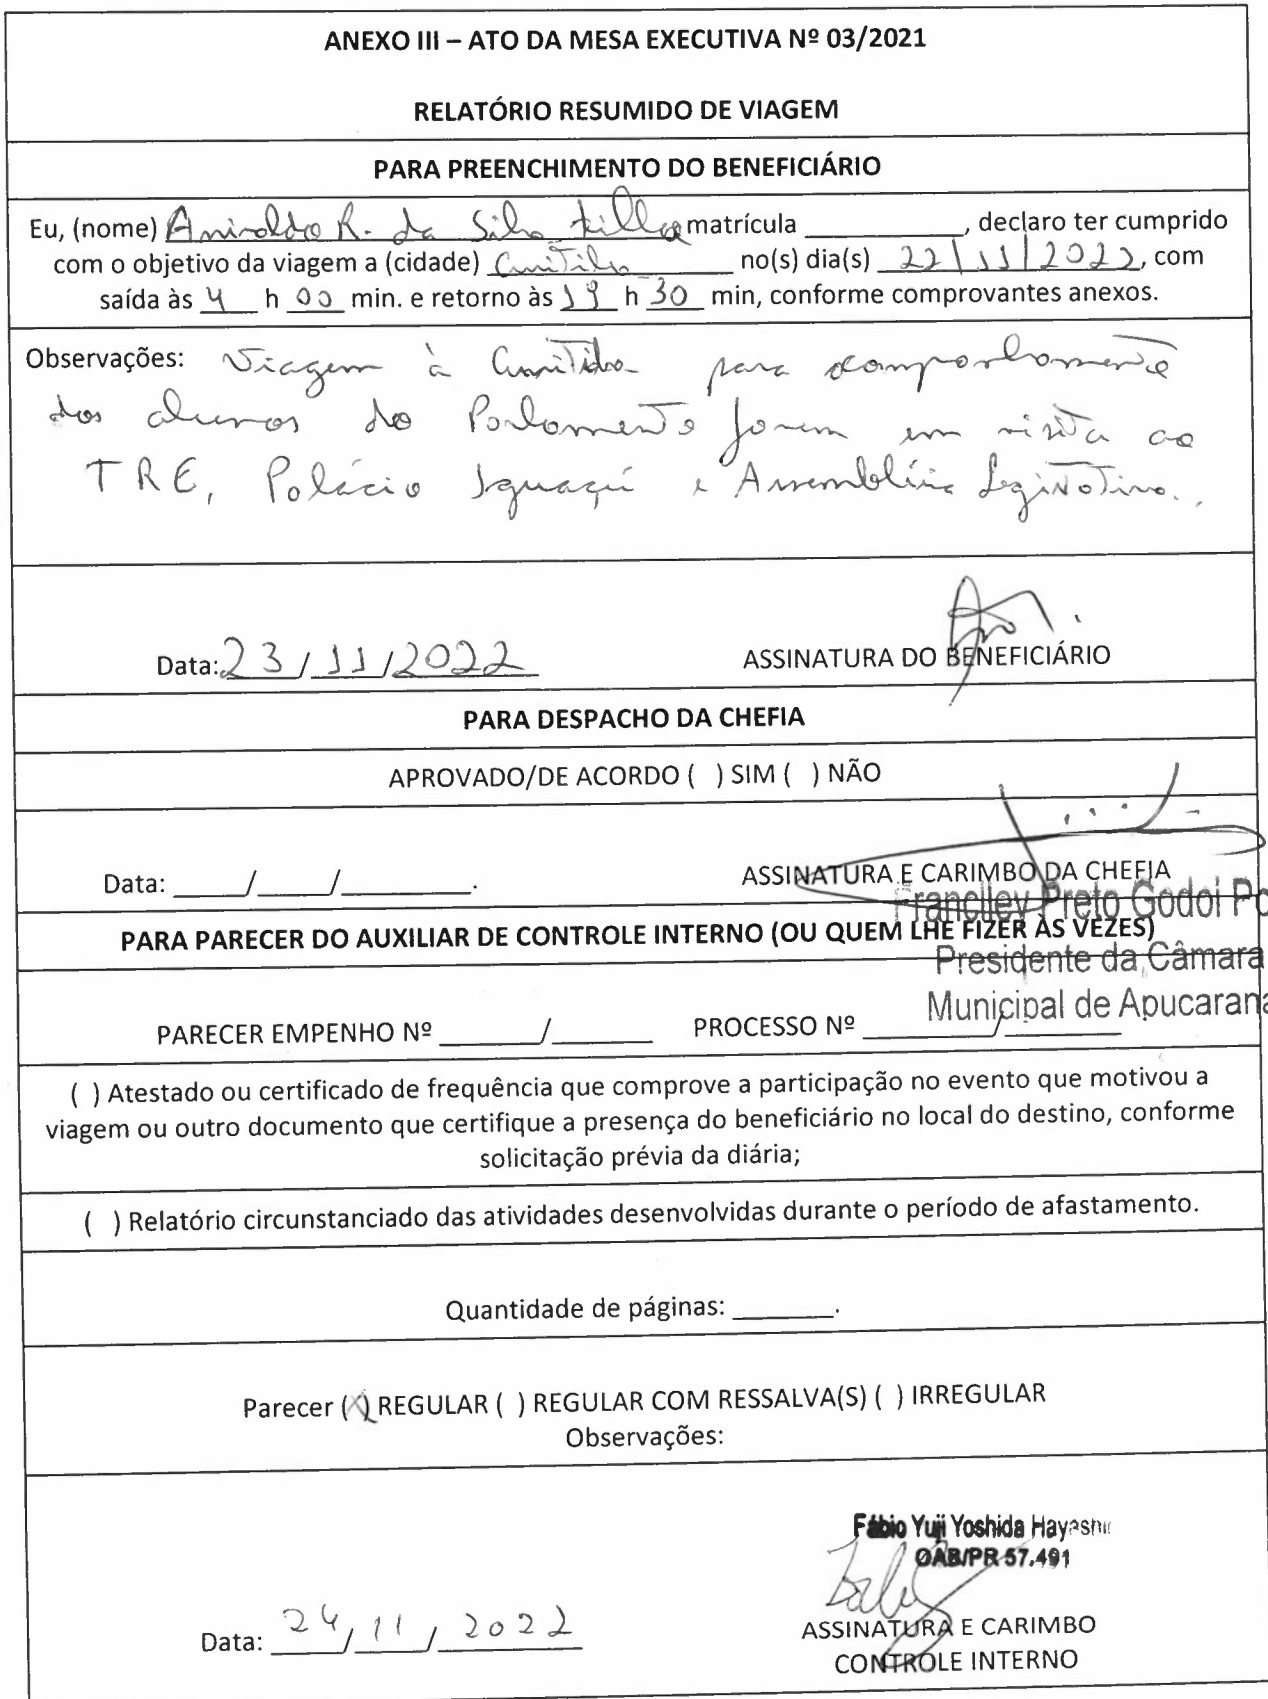 ANEXO III – ATO DA MESA EXECUTIVA Nº 03/2021
RELATÓRIO RESUMIDO DE VIAGEM
PARA PREENCHIMENTO DO BENEFICIÁRIO
Eu, (nome) R. da Silva matrícula __________, declaro ter cumprido
com o objetivo da viagem a (cidade) Curitiba no(s) dia(s) 22/11/2022, com
saída às 4 h 00 min. e retorno às 19 h 30 min, conforme comprovantes anexos.
Observações: Viagem à Curitiba para acompanhamento
dos alunos do Parlamento Jovem em visita ao
TRE, Palácio Iguaçú e Assembléia Legislativa.
Data: 23/11/2022
ASSINATURA DO BENEFICIÁRIO
PARA DESPACHO DA CHEFIA
APROVADO/DE ACORDO ( ) SIM ( ) NÃO
Data: _____/_____/________.
ASSINATURA E CARIMBO DA CHEFIA
Franciley Preto Godoi Po
PARA PARECER DO AUXILIAR DE CONTROLE INTERNO (OU QUEM LHE FIZER ÀS VEZES)
Presidente da Câmara
Municipal de Apucarana
PARECER EMPENHO Nº ______/______ PROCESSO Nº ________/_______
( ) Atestado ou certificado de frequência que comprove a participação no evento que motivou a
viagem ou outro documento que certifique a presença do beneficiário no local do destino, conforme
solicitação prévia da diária;
( ) Relatório circunstanciado das atividades desenvolvidas durante o período de afastamento.
Quantidade de páginas: _______.
Parecer (X) REGULAR ( ) REGULAR COM RESSALVA(S) ( ) IRREGULAR
Observações:
Fábio Yuji Yoshida Hayashi
OAB/PR 57.491
Data: 24/11/2022
ASSINATURA E CARIMBO
CONTROLE INTERNO